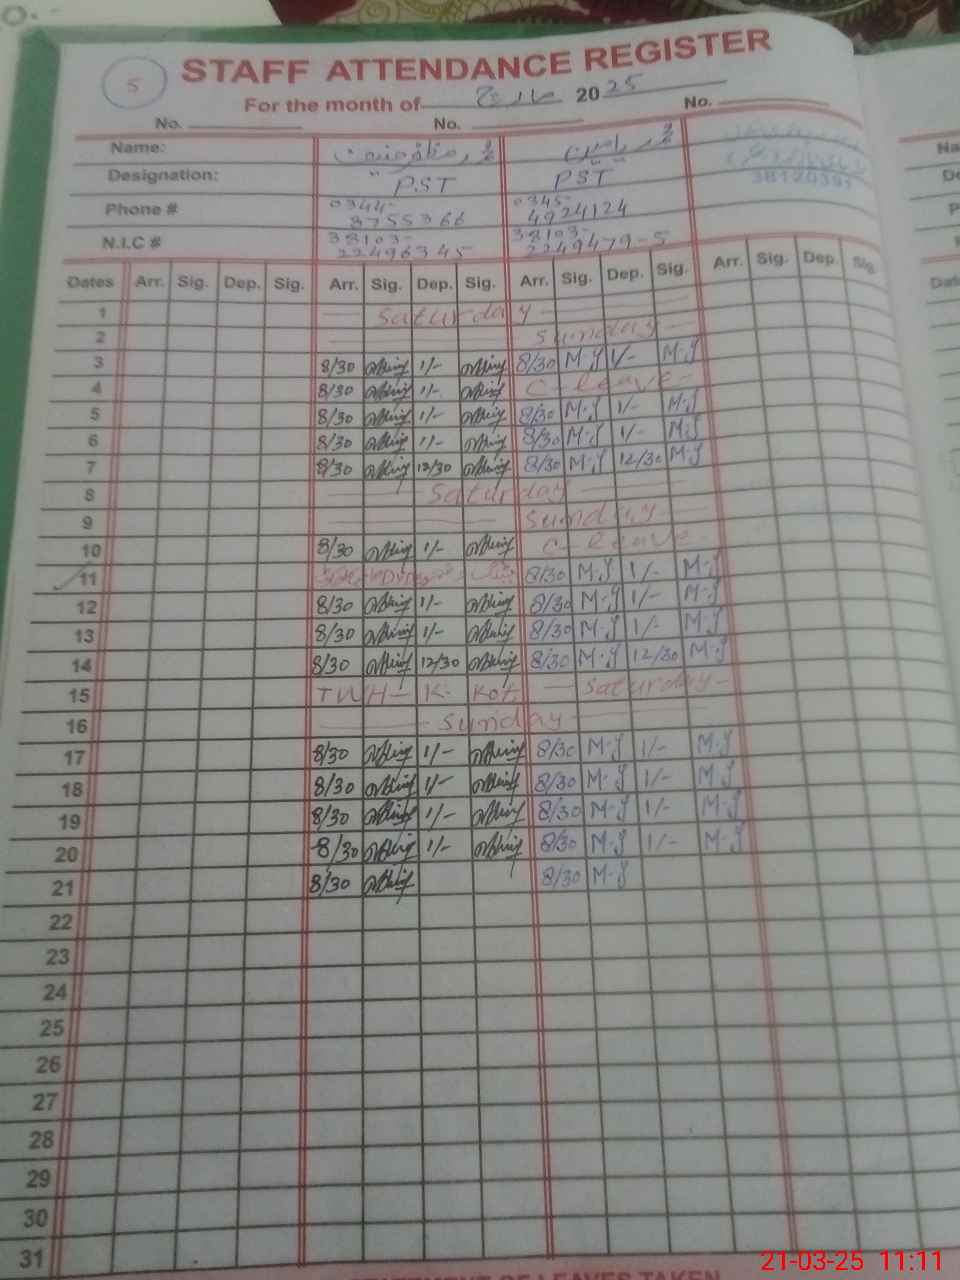 5
STAFF ATTENDANCE REGISTER
For the month of مارچ 2025
No. No. No.
Name: محمد یامین
Designation: PST PST
Phone # 0344- 8755366 0345- 4924124
N.I.C # 38103- 22496345 38103- 2249479-5
38120391
Dates Arr. Sig. Dep. Sig. Arr. Sig. Dep. Sig. Arr. Sig. Dep. Sig. Arr. Sig. Dep. Sig.
1 Saturday
2 Sunday
3 8/30 1/- 8/30 M.Y 1/- M.Y
4 8/30 1/- C-leave-
5 8/30 1/- 8/30 M.Y 1/- M.Y
6 8/30 1/- 8/30 M.Y 1/- M.Y
7 8/30 12/30 8/30 M.Y 12/30 M.Y
8 Saturday
9 Sunday
10 8/30 1/- C-leave-
11 8/30 M.Y 1/- M.Y
12 8/30 1/- 8/30 M.Y 1/- M.Y
13 8/30 1/- 8/30 M.Y 1/- M.Y
14 8/30 12/30 8/30 M.Y 12/30 M.Y
15 K. Kot Saturday-
16 Sunday
17 8/30 1/- 8/30 M.Y 1/- M.Y
18 8/30 1/- 8/30 M.Y 1/- M.Y
19 8/30 1/- 8/30 M.Y 1/- M.Y
20 8/30 1/- 8/30 M.Y 1/- M.Y
21 8/30 8/30 M.Y
22
23
24
25
26
27
28
29
30
31
OF LEAVES TAKEN
21-03-25 11:11